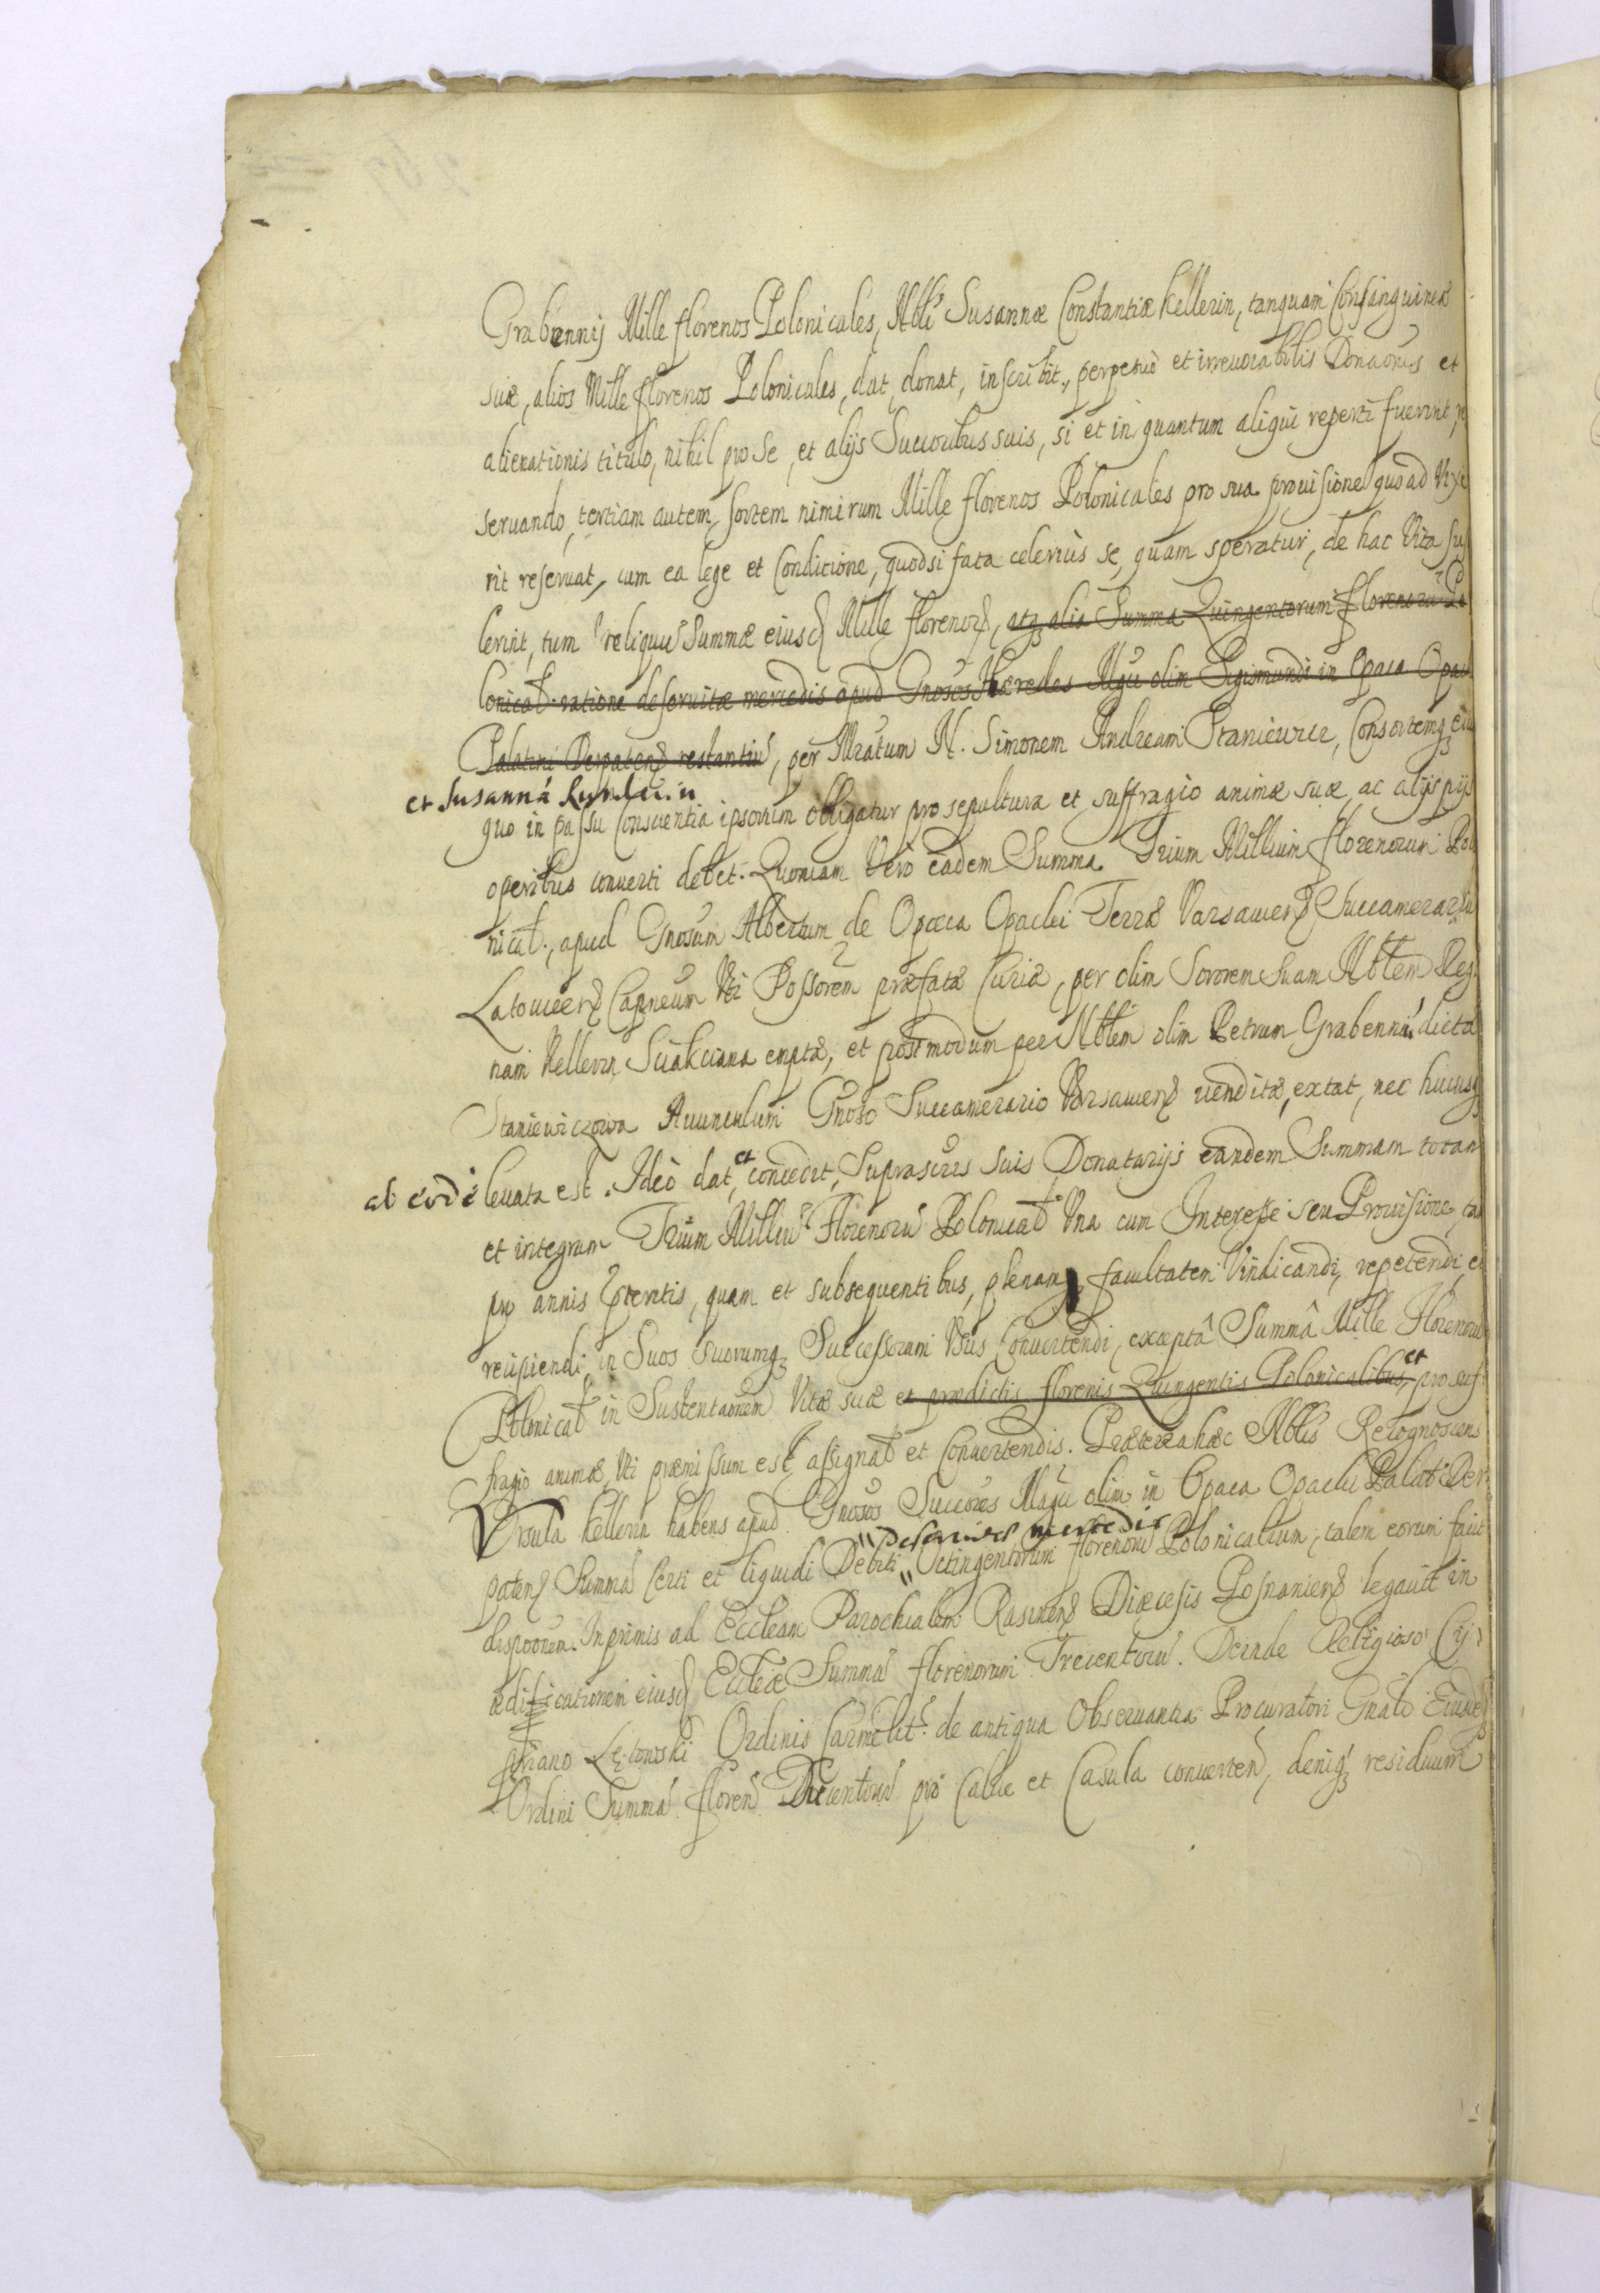 Grabennij Mille florenos Polonicales, Nbli Susannæ Constantiæ Kellerin, tanquam Consanguineæ
suæ, alios Mille florenos Polonicales, dat, donat, inscribit, perpetuò et irreuocabilis Donaonis et
alienationis titulo, nihil pro se, et alijs Succoribus suis, si et in quantum aliqui reperti fuerint, re
seruando, tertiam autem sortem nimirum Mille florenos Polonicales pro sua prouisione quoad Vixe
rit reseruat, cum ea lege et Conditione, quodsi fata celeriùs se, quam speratur, de hac Vita sus
lerint, tum reliquu Summæ eiusd Mille florenor, atq alia Summa Quingentorum florenoru Po
lonical. ratione deseruitæ mercedis apud Gnosos Hæredes Mgci olim Sigismundi in Opaca Opacki
Palatini Derpatens restantiu, per Mratum N. Simonem Andream Staniewicz, Consortemq eius
et Susannã
quo in passu Conscientia ipsorum obligatur pro sepultura et suffragio animæ suæ, ac alijs pijs
operibus conuerti debet. Quoniam Verò eadem Summa Trium Millium florenorum Polo
nical., apud Gnosum Albertum de Opaca Opacki Terræ Varsauiens Succamerariu
Latouicens Capneum Vti Possorem præfatæ Curiæ, per olim Sororem suam Nblem Regi
nam Kellerin Sciakciana emptæ, et postmodum per Nblem olim Petrum Grabenni dictæ
Staniewiczowa Auunculum Gnoso Succamerario Varsauiens venditæ, extat, nec hucusq
ab eode leuata est. Ideò dat, et concedit, Suprascris suis Donatarijs eandem Summam totam
et integram Trium Milliu Florenoru Polonical Vna cum Interesse seu Prouisione, tam
pro annis præteritis, quam et subsequentibus, plenam facultatem Vindicandi, repetendi, et
recipiendi, in Suos suorumq Successorum Vsus Conuertendi, exceptâ Summâ Mille Florenoru
Polonical in Sustentaonem Vitæ suæ et prædictis florenis Quingentis Polonicalibus, et pro suf
fragio animæ, Vti præmissum est, assignat et Conuertendis. Præterea hæc Nblis Recognoscens
Vrsula Kellerin habens apud Gnosos Succores Mgci olim in Opaca Opacki Palat. Der
patens Summa Certi et liquidi Debiti " Deseruitæ mercedis " Octingentorum florenoru Polonicalium, talem eorum facit
disponem. Inprimis ad Eccleam Parochialem Rasinens Diæcesis Posnaniens legauit in
ædificationem eiusd Eccleæ Summa florenorum Trecentoru. Deinde Religioso Cy
priano Lętowski Ordinis Carmelit. de antiqua Obseruantia Procuratori Gnali Eiusd
Ordini Summa floren Ducentoru pro Calice et Casula conuerten, deniq residuum